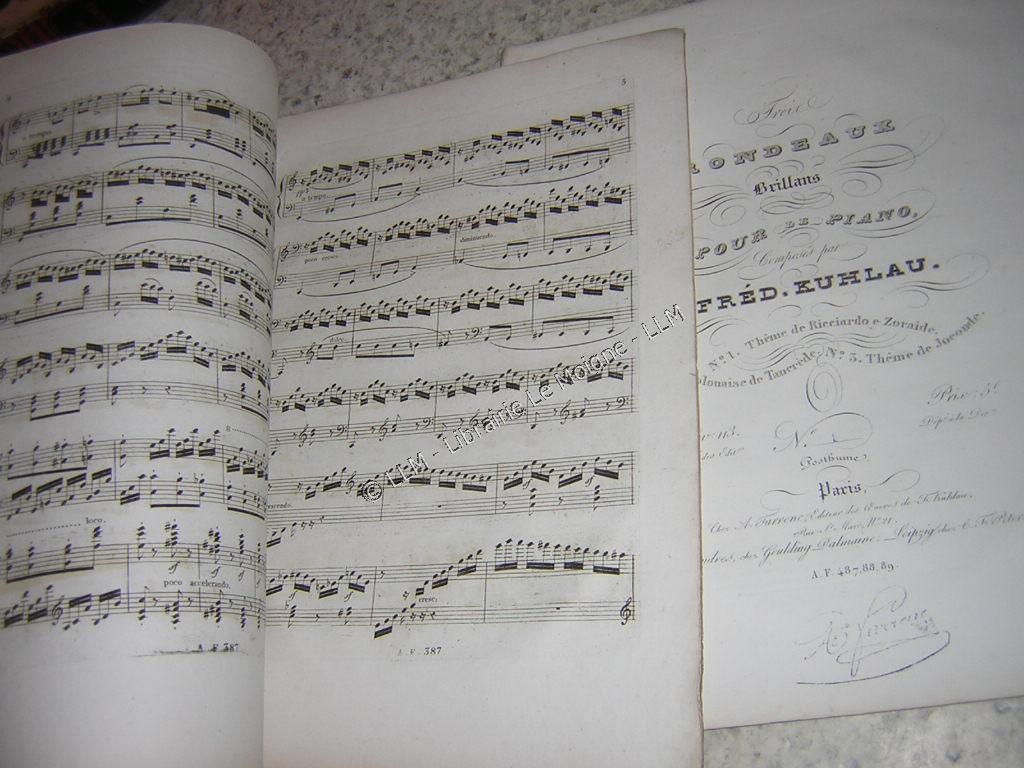 a tempo
loco.
poco accelerando.
A F 387
5
a tempo.
poco cresc
diminuendo.
dolce
cresc:
A . F . 387
Trois
RONDEAUX
Brillans
POUR LE PIANO,
Composés par
FRÉD. KUHLAU.
No. 1. Thême de Ricciardo e Zoraide.
olonaise de Tancrède; No. 3. Thême de Joconde.
113.
Prix: 5f.
des Edrs.
No. 1
Posthume;
Paris,
Chez A. Farrenc, Editeur des Œuvres de F. Kuhlau,
Rue St. Marc, No. 21.
ndres, chez Goulding-Dalmaine. - Leipzig chez C. F. Peters
A.F. 487, 88, 89.
A. Farrenc
© LLM - Librairie Le Moigne - LLM